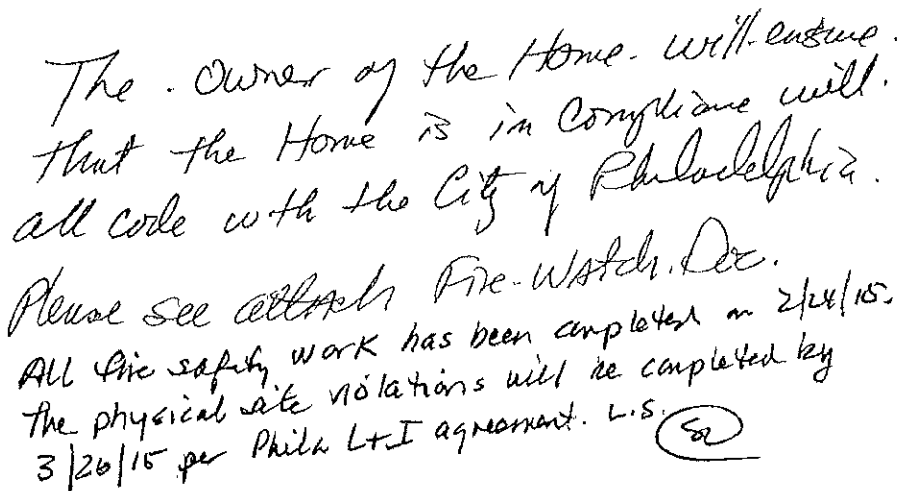 The. Owner of the Home. will. ensure.
that the Home is in Compliane will.
all code with the City of Philadelphia.
Please see attach Fire-Watch. Doc.
All fire safety work has been completed on 2/24/15.
The physical site violations will be completed by
3/26/15 per Phila L+I agreement. L.S.